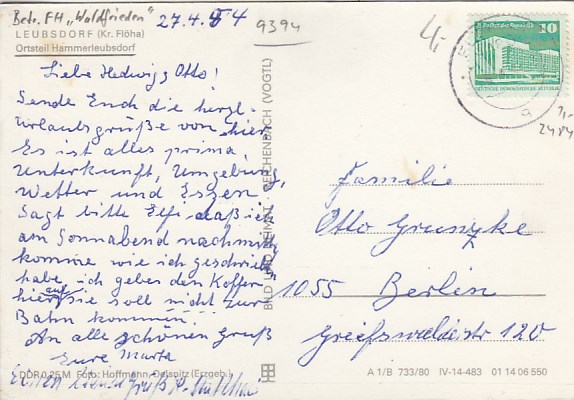 Betr. FH „Waldfrieden"
27.4.84
9394
LEUBSDORF (Kr. Flöha)
Ortsteil Hammerleubsdorf
4,-
10
DEUTSCHE DEMOKRATISCHE REPUBLIK
Liebe Hedwig, Otto!
Sende Euch die herzl.
Urlaubsgrüße von hier
Es ist alles prima,
Unterkunft, Umgebung,
Wetter und Essen
Sagt bitte Elfi daß ich
am Sonnabend nachmitt
komme wie ich geschrieb
habe, ich gebe den Koffer
hier auf sie soll nicht zur
Bahn kommen.
An alle schönen Gruß
Eure Marta
Einen Gruß
BILD UND HEIMAT · REICHENBACH (VOGTL)
Familie
Otto Grunzke
1055 Berlin
Greifswalderstr 120
DDR 0,25 M Foto: Hoffmann, Oelsnitz (Erzgeb.)
A 1/B 733/80 IV-14-483 01 14 06 550